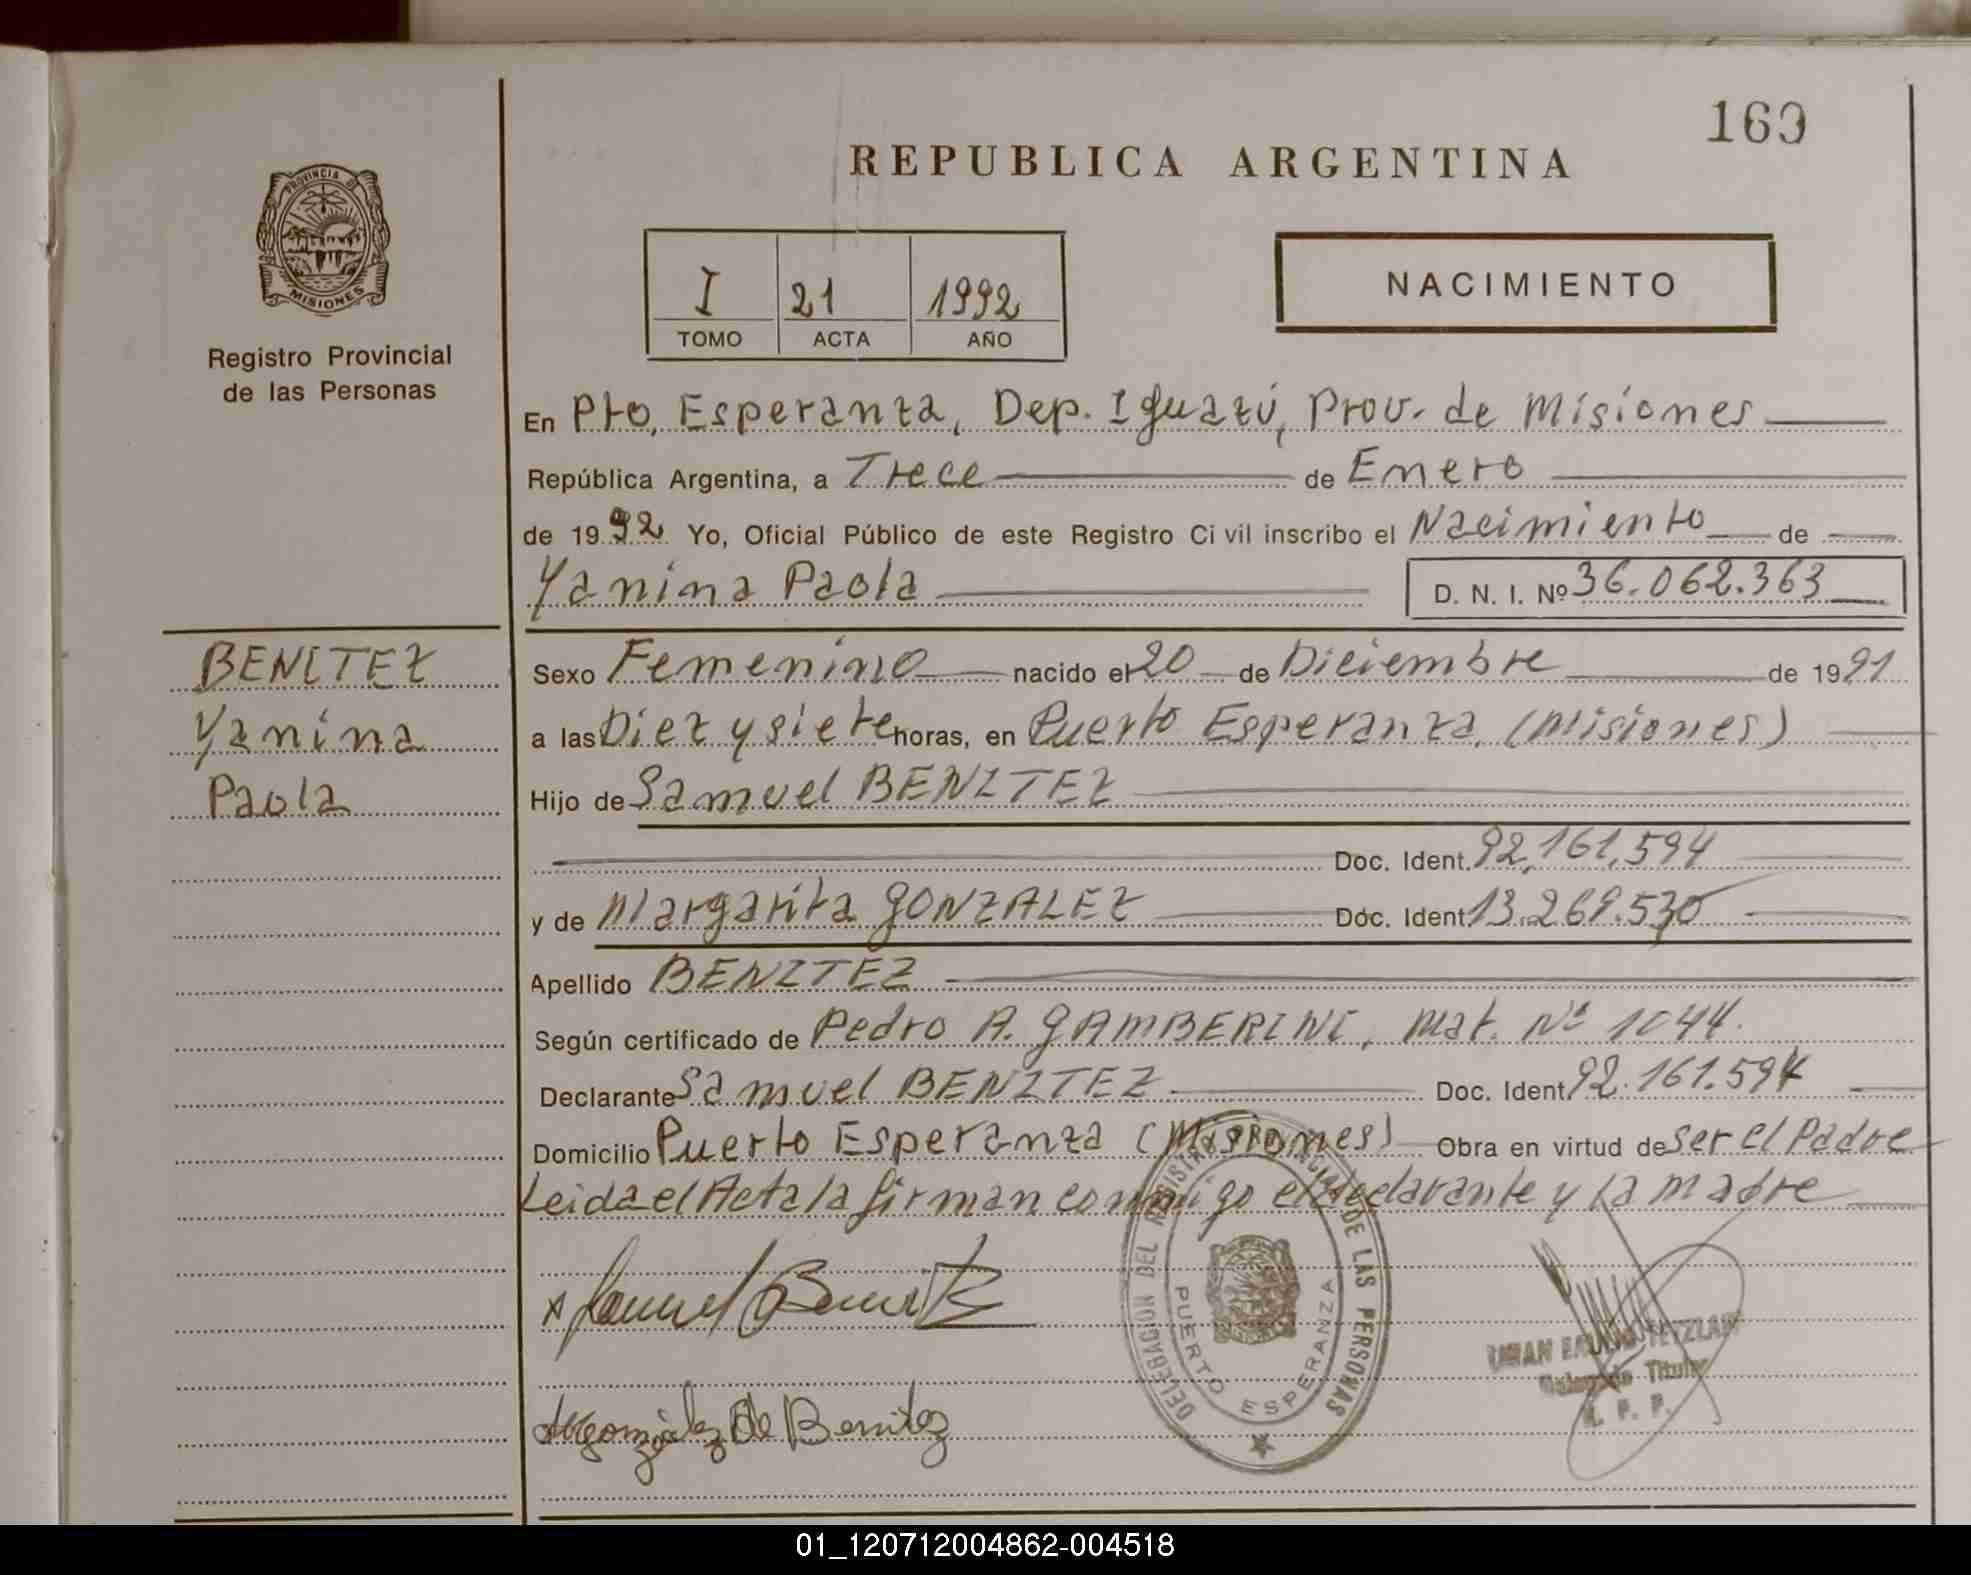 160
REPUBLICA ARGENTINA
PROVINCIA DE
MISIONES
Registro Provincial
de las Personas
I 21 1992
TOMO ACTA AÑO
NACIMIENTO
En Pto. Esperanza, Dep. Iguazú, Prov. de Misiones
República Argentina, a Trece de Enero
de 1992 Yo, Oficial Público de este Registro Civil inscribo el Nacimiento de
Yanina Paola D. N. I. Nº 36.062.363
BENITEZ
Yanina
Paola
Sexo Femenino nacido el 20 de Diciembre de 1991
a las Diez y siete horas, en Puerto Esperanza, (Misiones)
Hijo de Samuel BENITEZ
Doc. Ident. 92.161.594
y de Margarita GONZALEZ Doc. Ident. 13.269.530
Apellido BENITEZ
Según certificado de Pedro A. GAMBERINI, Mat. Nº 1044.
Declarante Samuel BENITEZ Doc. Ident. 92.161.594
Domicilio Puerto Esperanza (Misiones) Obra en virtud de ser el Padre
Leida el Acta la firman conmigo el declarante y la madre
Samuel Benitez
DELEGACION DEL REGISTRO PROVINCIAL DE LAS PERSONAS
PUERTO ESPERANZA
Titular
R. P. P.
M gonzález De Benitez
01_120712004862-004518